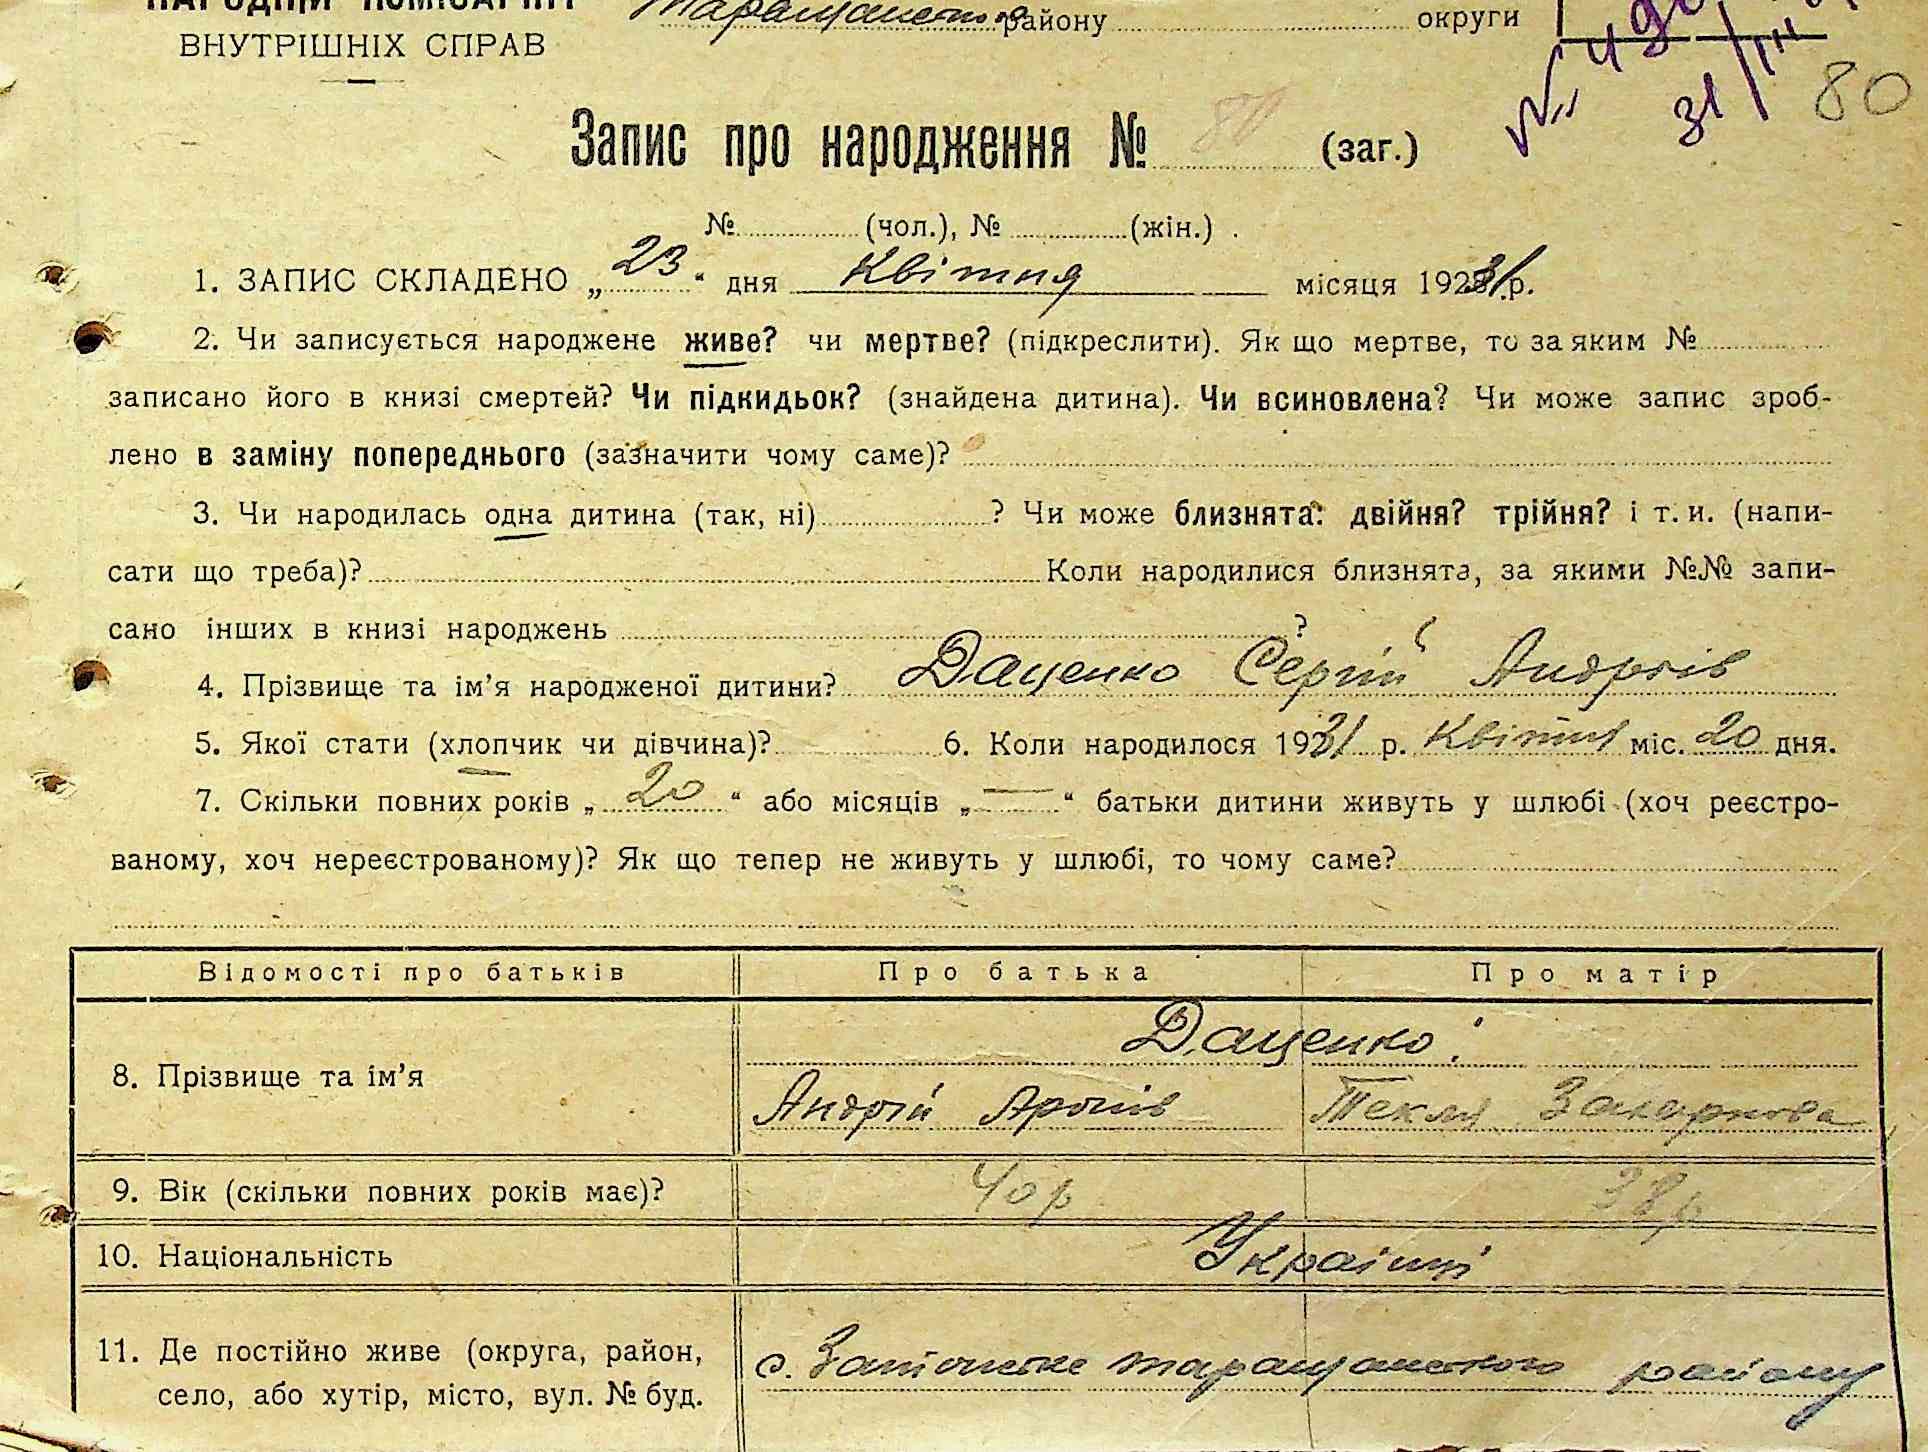 НАРОДНІЙ КОМІСАРІЯТ
ВНУТРІШНІХ СПРАВ
Таращанського району округи
31/III
80
Запис про народження № 80 (заг.)
№ (чол.), № (жін.).
1. ЗАПИС СКЛАДЕНО „23“ дня Квітня місяця 1931 р.
2. Чи записується народжене живе? чи мертве? (підкреслити). Як що мертве, то за яким №
записано його в книзі смертей? Чи підкидьок? (знайдена дитина). Чи всиновлена? Чи може запис зроб-
лено в заміну попереднього (зазначити чому саме)?
3. Чи народилась одна дитина (так, ні) ? Чи може близнята: двійня? трійня? і т. и. (напи-
сати що треба)? Коли народилися близнята, за якими №№ запи-
сано інших в книзі народжень ?
4. Прізвище та ім’я народженої дитини? Даценко Сергій Андріїв
5. Якої стати (хлопчик чи дівчина)? 6. Коли народилося 1931 р. Квітня міс. 20 дня.
7. Скільки повних років „20“ або місяців „—“ батьки дитини живуть у шлюбі (хоч реєстро-
ваному, хоч нереєстрованому)? Як що тепер не живуть у шлюбі, то чому саме?
Відомості про батьків Про батька Про матір
8. Прізвище та ім’я Даценко
Андрій Текля Захаркова
9. Вік (скільки повних років має)? 40 р 38 р
10. Національність Українці
11. Де постійно живе (округа, район,
село, або хутір, місто, вул. № буд.
с. Таращанського району